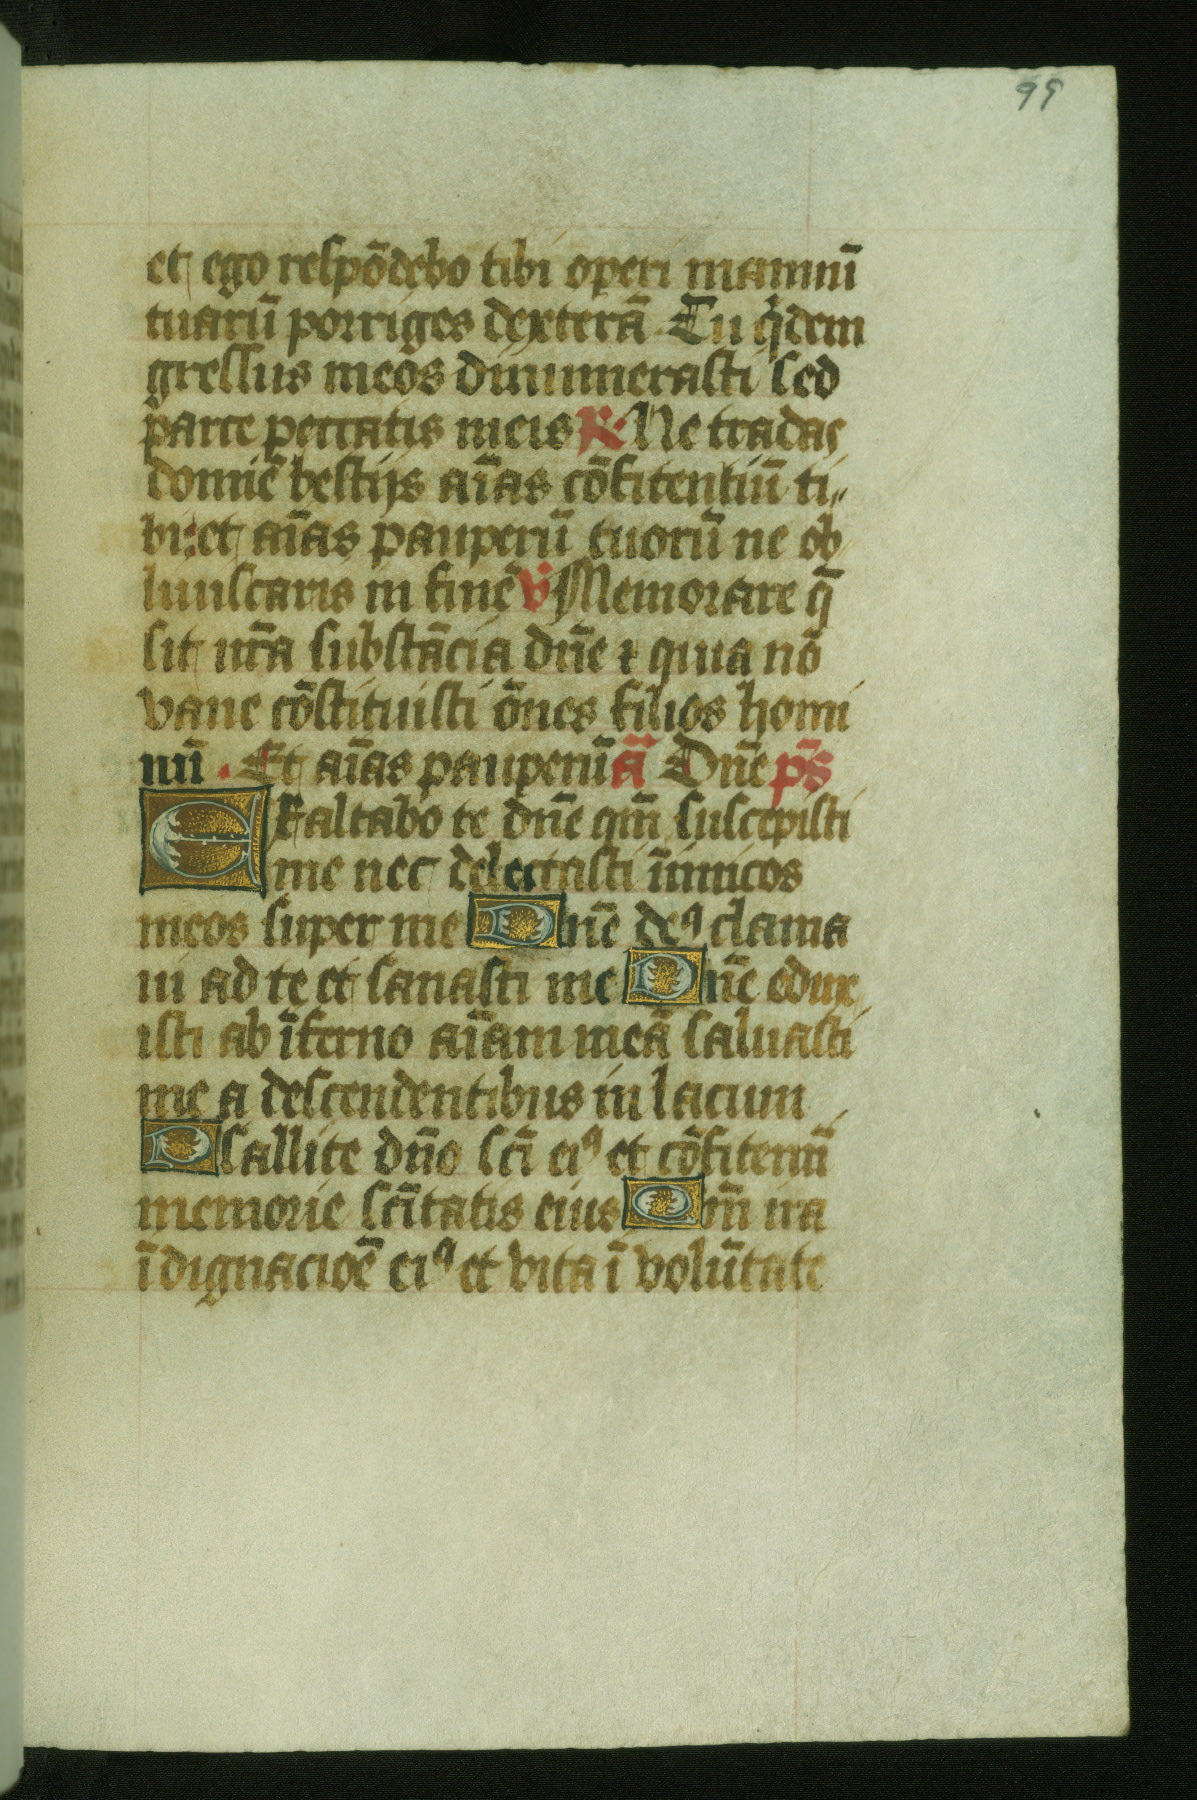 99
et ego respōdebo tibi operi manuū
tuarū porriges dexterā. Tu qͥdem
gressus meos dinumerasti sed
parce peccatis meis ℟ Ne tradas
domiē bestijs aīas cōfitentiū ti„
bi: et aīas pauperū tuorū ne ob
liuiscaris in finē ℣ Memorare q̄
sit nr̄a substācia dn̄e ⁊ quia nō
vane cōstituisti ōnes filios homi
nū . Et aīas pauperū ā Dn̄e ps̄
Exaltabo te dn̄e qm̄ suscepisti
me nec delectasti īimicos
meos super me Dn̄e deꝰ clama
ui ad te et sanasti me Dn̄e edux
isti ab īferno aīam meā saluasti
me a descendentibus in lacum
Psallite dn̄o scī eiꝰ et cōfitemī
memorie scītatis eius Qm̄ ira
ī dignacioē eiꝰ et vita ī volūtate